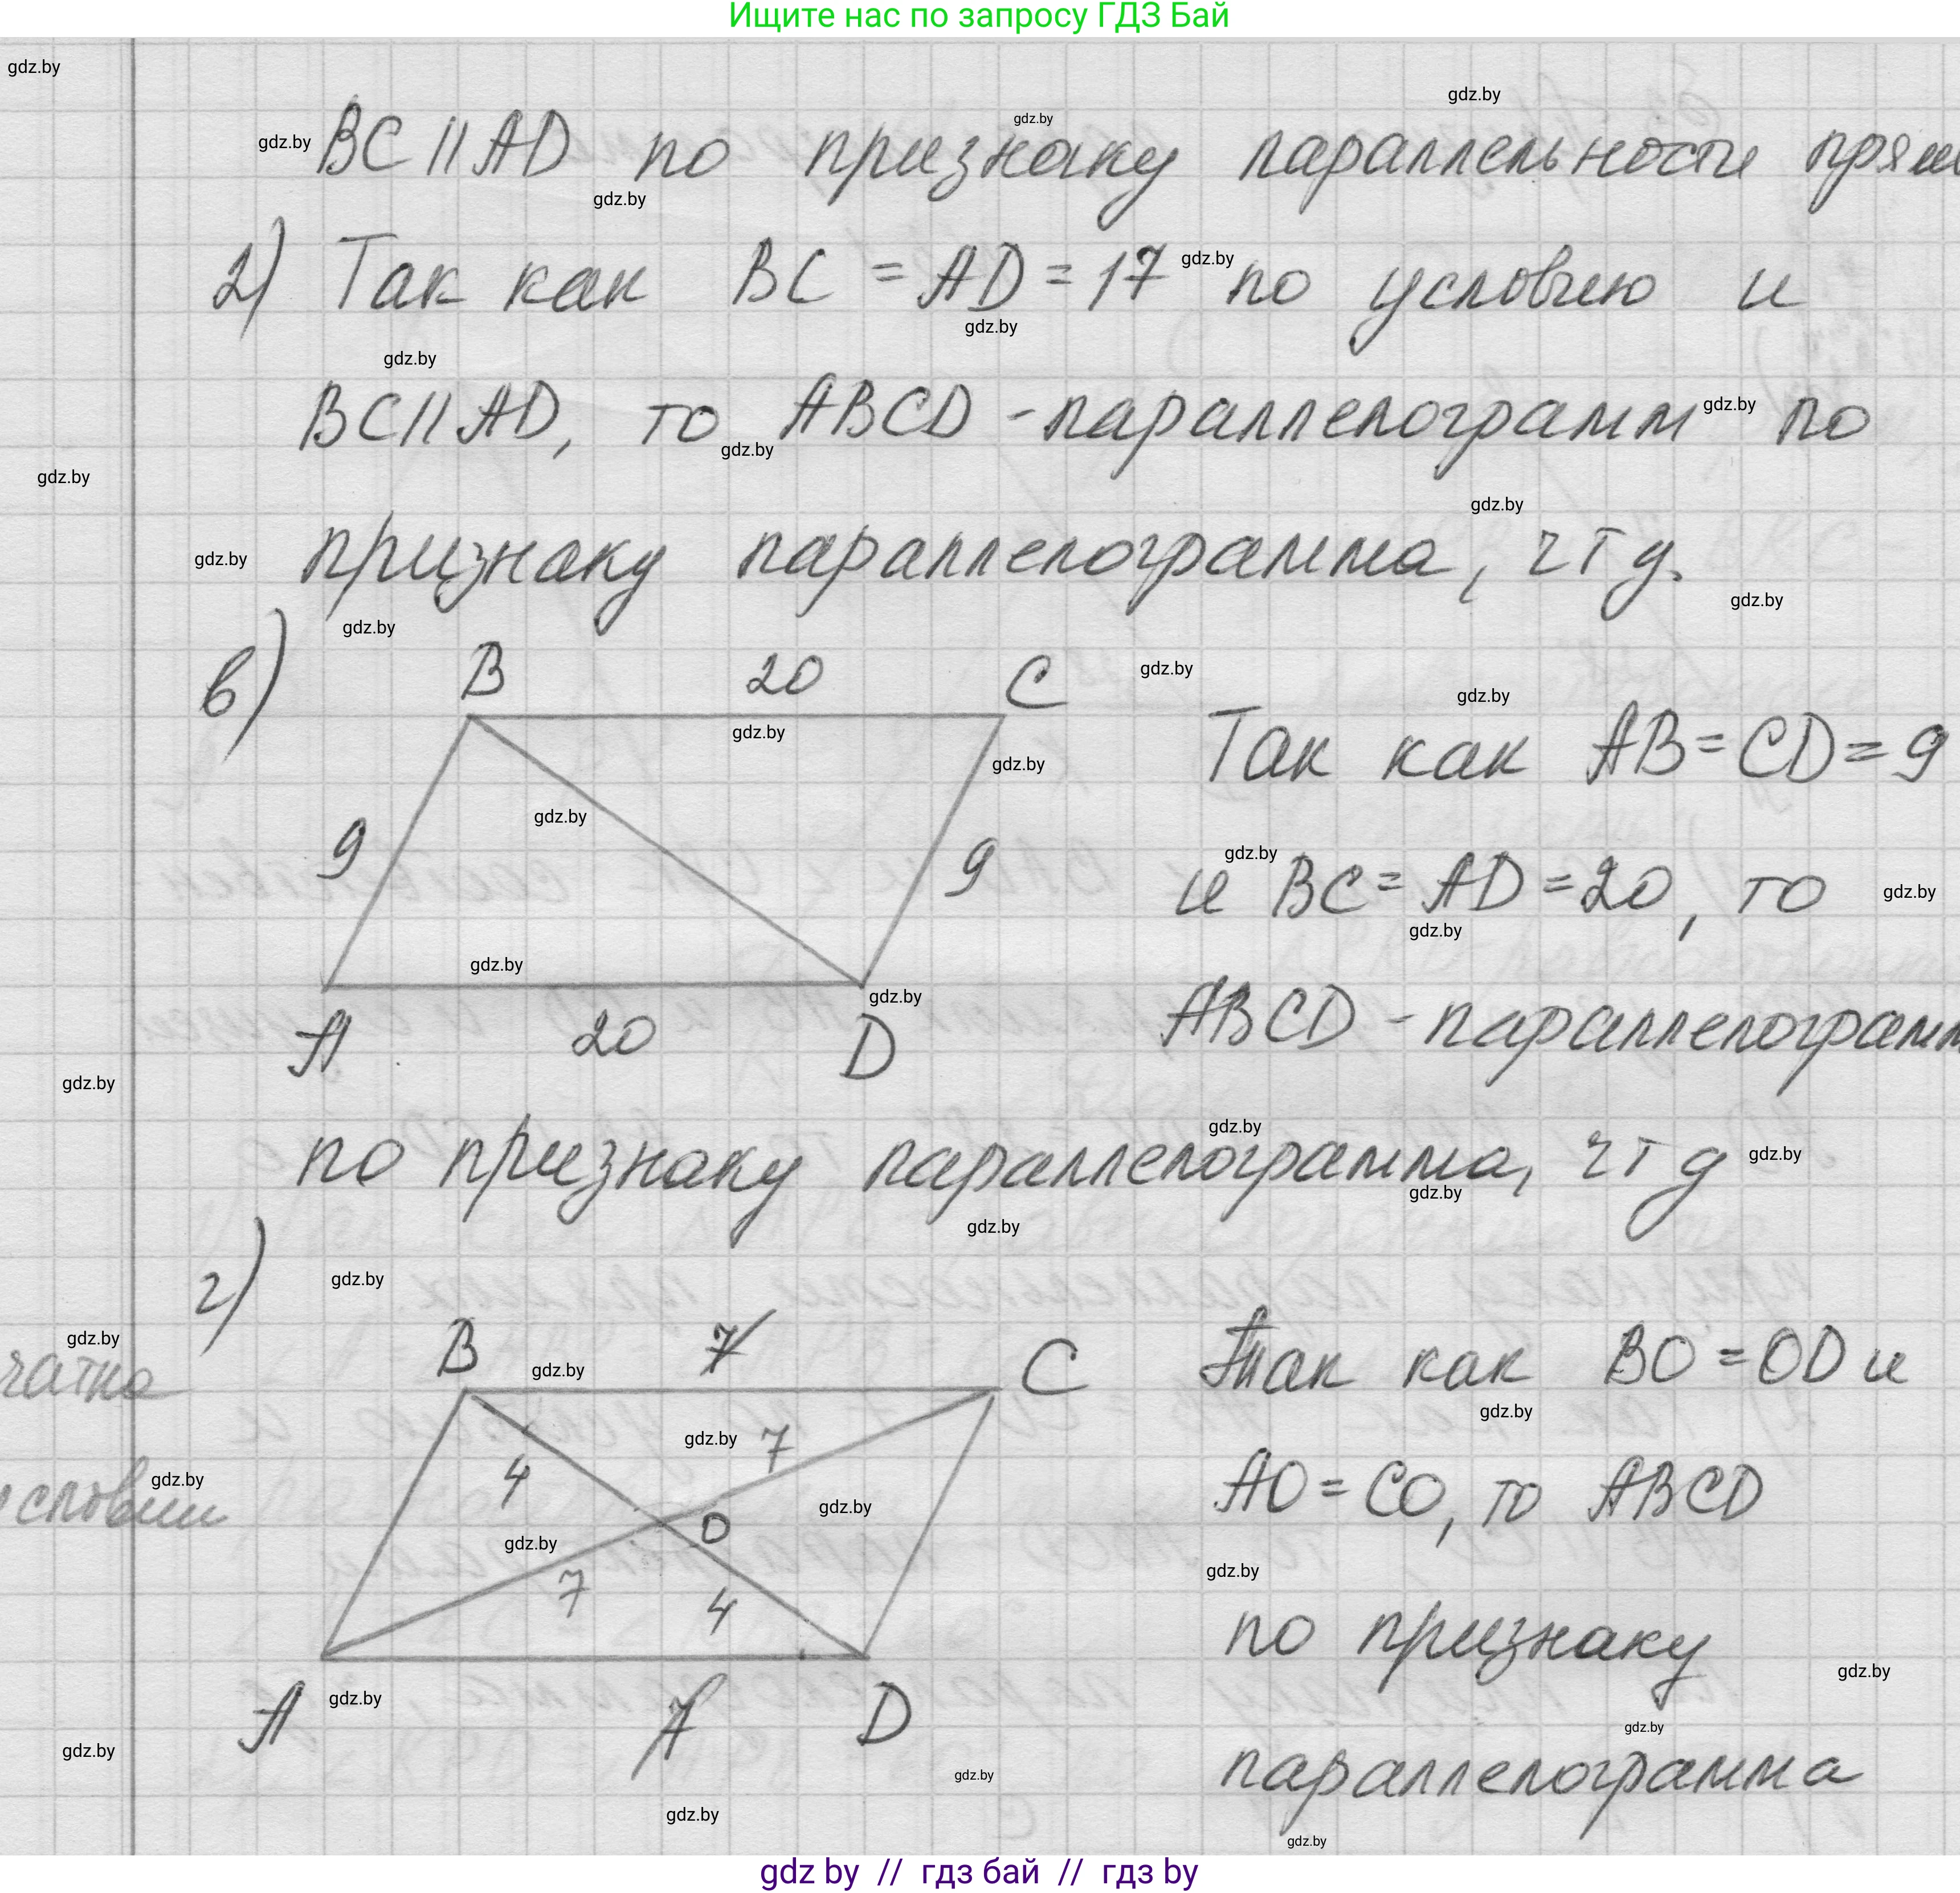 Ищите нас по запросу ГДЗ Бай
BC || AD по признаку параллельности прям
2) Так как BC = AD = 17 по условию и
BC || AD, то ABCD - параллелограмм по
признаку параллелограмма, чтд.
в) B 20 C
Так как AB = CD = 9
9 9
и BC = AD = 20, то
A 20 D
ABCD - параллелограмм
по признаку параллелограмма, чтд
г)
B 7 C
Так как BO = OD и
чатка
4 7
AO = CO, то ABCD
условии
O
7 4
по признаку
A 7 D
параллелограмма
gdz by // гдз бай // гдз by